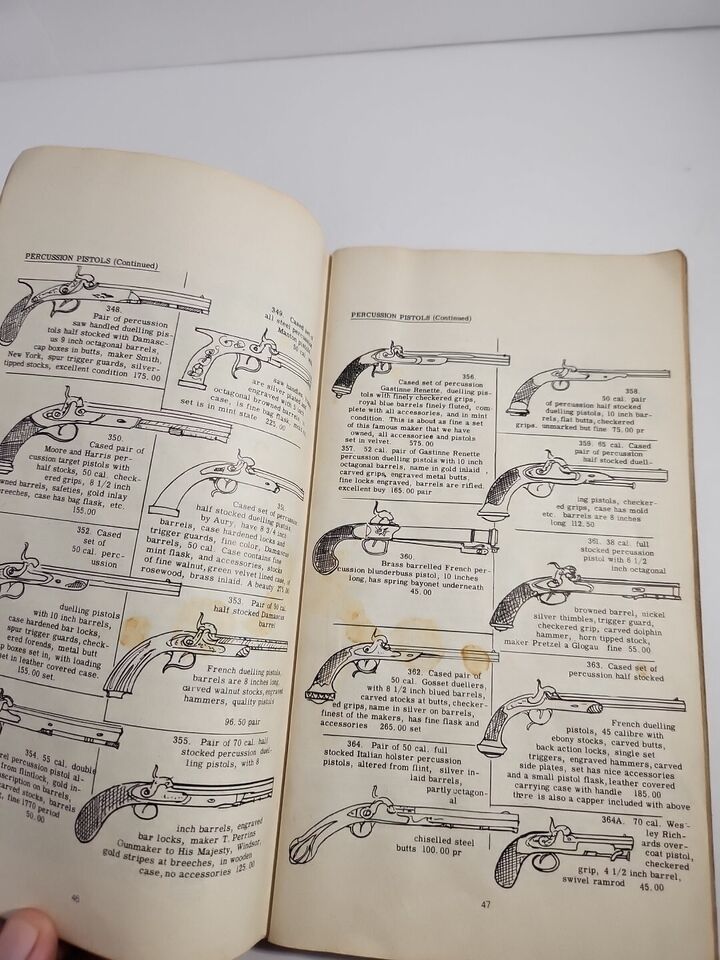 PERCUSSION PISTOLS (Continued)
348.
Pair of percussion
saw handled duelling pis-
tols half stocked with Damasc-
us 9 inch octagonal barrels,
cap boxes in butts, maker Smith,
New York, spur trigger guards, silver-
tipped stocks, excellent condition 175.00
349. Cased set
all steel percus
Manton
50 cal.
saw handle
are silver plated
engraved with 9 inch
octagonal browned barrels,
case, is fine bag flask,
set is in mint state 225.00
350.
Cased pair of
Moore and Harris per-
cussion target pistols with
half stocks, 50 cal. check-
ered grips, 8 1/2 inch
wned barrels, safeties, gold inlay
breeches, case has bag flask, etc.
155.00
351.
Cased set of percussion
half stocked duelling pistols
by Aury, have 8 3/4 inch
barrels, case hardened locks and
trigger guards, fine color, Damascus
barrels, 50 Cal. Case contains fine
mint flask, and accessories, stocks
of fine walnut, green velvet lined case, of
rosewood, brass inlaid. A beauty
352.
Cased
set of
50 cal. perc-
ussion
duelling pistols
with 10 inch barrels,
case hardened bar locks,
spur trigger guards, check-
ered forends, metal butt
p boxes set in, with loading
set in leather covered case.
155.00 set
353. Pair of 50 cal.
half stocked Damascus
barrel
French duelling pistols,
barrels are 8 inches long,
carved walnut stocks, engraved
hammers, quality pistols
96.50 pair
354. 55 cal. double
rel percussion pistol al-
from flintlock, gold in-
scription on barrels,
carved stocks, barrels
, fine 1770 period
50.00
355. Pair of 70 cal. half
stocked percussion duel-
ling pistols, with 8
inch barrels, engraved
bar locks, maker T. Perrins
Gunmaker to His Majesty, Windsor,
gold stripes at breeches, in wooden
case, no accessories 125.00
46
PERCUSSION PISTOLS (Continued)
356.
Cased set of percussion
Gastinne Renette. duelling pis-
tols with finely checkered grips,
royal blue barrels finely fluted, com
plete with all accessories, and in mint
condition. This is about as fine a set
of this famous maker that we have
owned, all accessories and pistols
set in velvet. 575.00
357. 52 cal. pair of Gastinne Renette
percussion duelling pistols with 10 inch
octagonal barrels, name in gold inlaid,
carved grips, engraved metal butts,
fine locks engraved, barrels are rifled.
excellent buy 165.00 pair
358.
50 cal. pair
of percussion half stocked
duelling pistols, 10 inch bar-
rels, flat butts, checkered
grips. unmarked but fine 75.00 pr
359. 65 cal. Cased
pair of percussion
half stocked duell-
ing pistols, checker-
ed grips, case has mold
etc. barrels are 8 inches
long 112.50
360.
Brass barrelled French per-
cussion blunderbuss pistol, 10 inches
long, has spring bayonet underneath
45.00
361. 38 cal. full
stocked percussion
pistol with 6 1/2
inch octagonal
browned barrel, nickel
silver thimbles, trigger guard,
checkered grip, carved dolphin
hammer, horn tipped stock,
maker Pretzel a Glogau fine 55.00
362. Cased pair of
50 cal. Gosset duellers,
with 8 1/2 inch blued barrels,
carved stocks at butts, checker-
ed grips, name in silver on barrels,
finest of the makers, has fine flask and
accessories 265.00 set
363. Cased set of
percussion half stocked
French duelling
pistols, 45 calibre with
ebony stocks, carved butts,
back action locks, single set
triggers, engraved hammers, carved
side plates, set has nice accessories
and a small pistol flask, leather covered
carrying case with handle 185.00
there is also a capper included with above
364. Pair of 50 cal. full
stocked Italian holster percussion
pistols, altered from flint, silver in-
laid barrels,
partly octagon-
al
chiselled steel
butts 100.00 pr
364A. 70 cal. Wes-
ley Rich-
ards over-
coat pistol,
checkered
grip, 4 1/2 inch barrel,
swivel ramrod 45.00
47